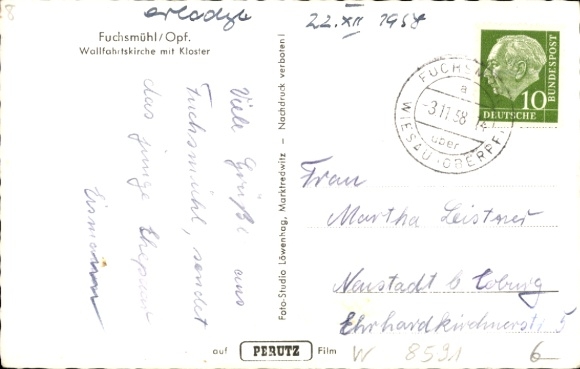 8
erledigt
22. XII 1958
Fuchsmühl/Opf.
Wallfahrtskirche mit Kloster
Viele Grüße aus
Fuchsmühl, sendet
das junge Ehepaar
Foto-Studio Löwenhag, Marktredwitz – Nachdruck verboten!
auf PERUTZ Film
FUCHSMÜHL
a
-3.11.58
über
WIESAU (OBERPF)
10
DEUTSCHE
BUNDESPOST
Frau
Martha Leistner
Neustadt b Coburg
Ehrhardkirchnerstr 5
W 8591 6